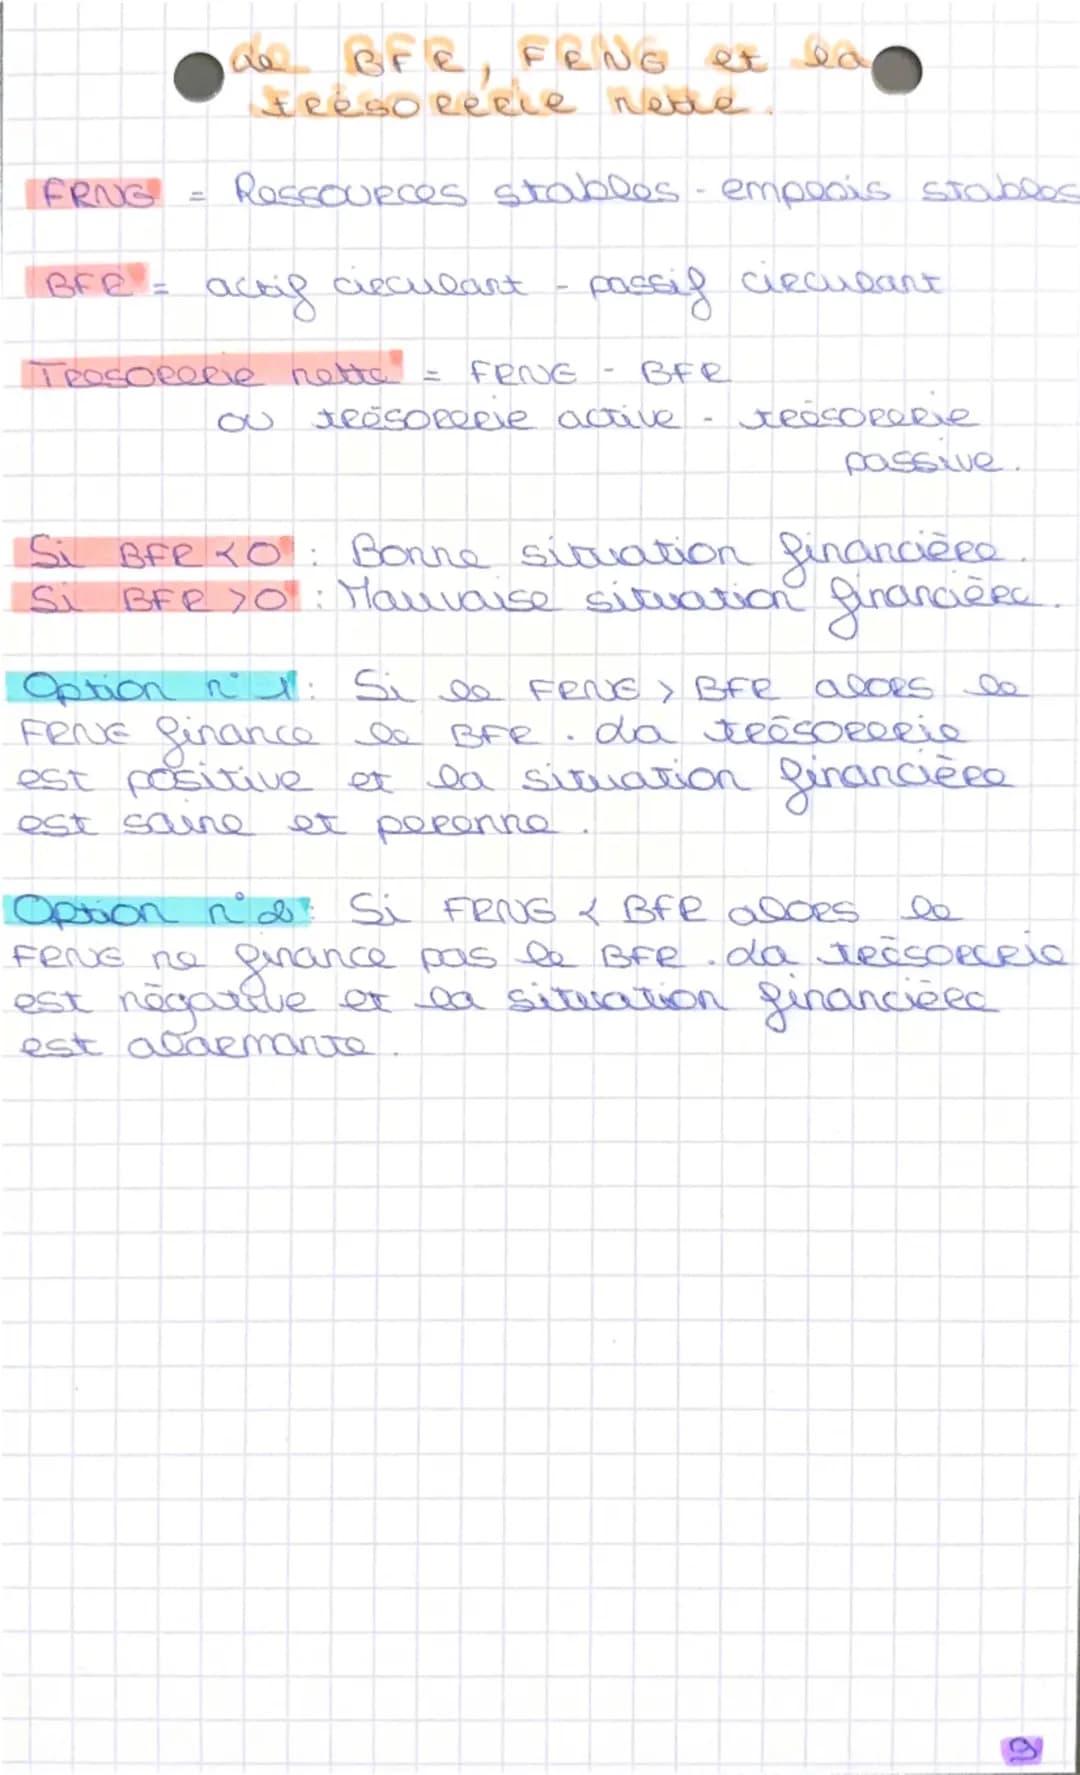 Le BFR, FRNG et la
trésorerie nette.
FRNG = Ressources stables - emplois stables
BFR = actif circulant - passif circulant
Tresorerie nette = FRNG - BFR
ou trésorerie active - trésorerie
passive.
Si BFR < 0 : Bonne situation financière.
Si BFR > 0 : Mauvaise situation financière.
Option n°1 : Si le FRNG > BFR alors le
FRNG finance le BFR. La trésorerie
est positive et la situation financière
est saine et perenne.
Option n°2 : Si FRNG < BFR alors le
FRNG ne finance pas le BFR. La trésorerie
est négative et la situation financière
est alarmante.
9